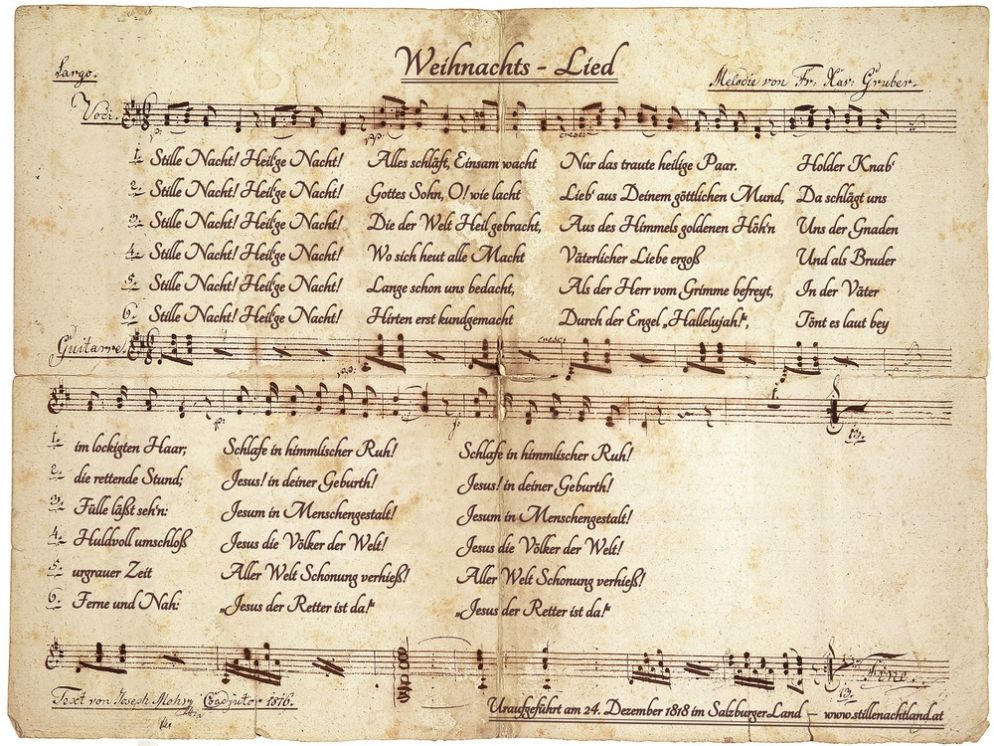 Weihnachts - Lied
Largo.
Melodie von Fr. Xav: Gruber.
Voci.
1. Stille Nacht! Heil'ge Nacht! Alles schläft, Einsam wacht Nur das traute heilige Paar. Holder Knab'
2. Stille Nacht! Heil'ge Nacht! Gottes Sohn, O! wie lacht Lieb' aus Deinem göttlichen Mund, Da schlägt uns
3. Stille Nacht! Heil'ge Nacht! Die der Welt Heil gebracht, Aus des Himmels goldenen Höh'n Uns der Gnaden
4. Stille Nacht! Heil'ge Nacht! Wo sich heut alle Macht Väterlicher Liebe ergoß Und als Bruder
5. Stille Nacht! Heil'ge Nacht! Lange schon uns bedacht, Als der Herr vom Grimme befreyt, In der Väter
6. Stille Nacht! Heil'ge Nacht! Hirten erst kundgemacht Durch der Engel „Hallelujah!“, Tönt es laut bey
Guitarre.
cresc:
1. im lockigten Haar; Schlafe in himmlischer Ruh! Schlafe in himmlischer Ruh!
2. die rettende Stund; Jesus! in deiner Geburth! Jesus! in deiner Geburth!
3. Fülle läßt seh'n: Jesum in Menschengestalt! Jesum in Menschengestalt!
4. Huldvoll umschloß Jesus die Völker der Welt! Jesus die Völker der Welt!
5. urgrauer Zeit Aller Welt Schonung verhieß! Aller Welt Schonung verhieß!
6. Ferne und Nah: „Jesus der Retter ist da!“ „Jesus der Retter ist da!“
Fine.
Text von Joseph Mohr, Coadjutor 1816.
Uraufgeführt am 24. Dezember 1818 im SalzburgerLand – www.stillenachtland.at